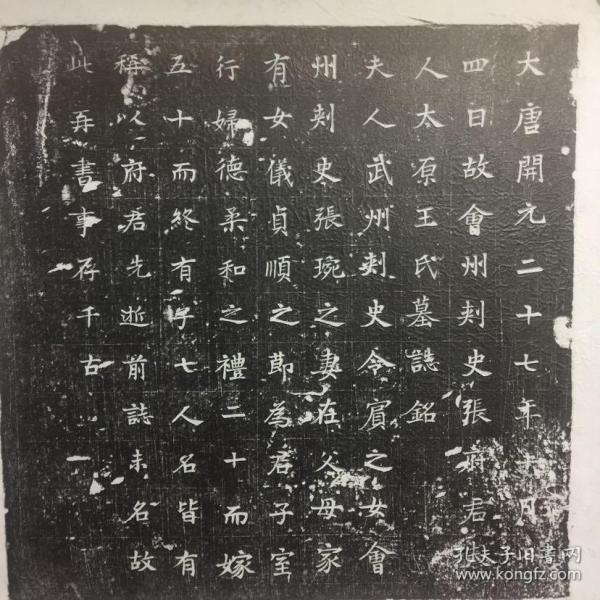 大唐開元二十七年十月
四日故會州刾史張府君
人太原王氏墓誌銘
夫人武州刾史令賔之女會
州刾史張琬之妻在父母家
有女儀貞順之莭為君子室
行婦德柔和之禮二十而嫁
五十而終有子七人名皆有
稱以府君先逝前誌未名故
此再書事存千古
孔夫子旧書网
www.kongfz.com